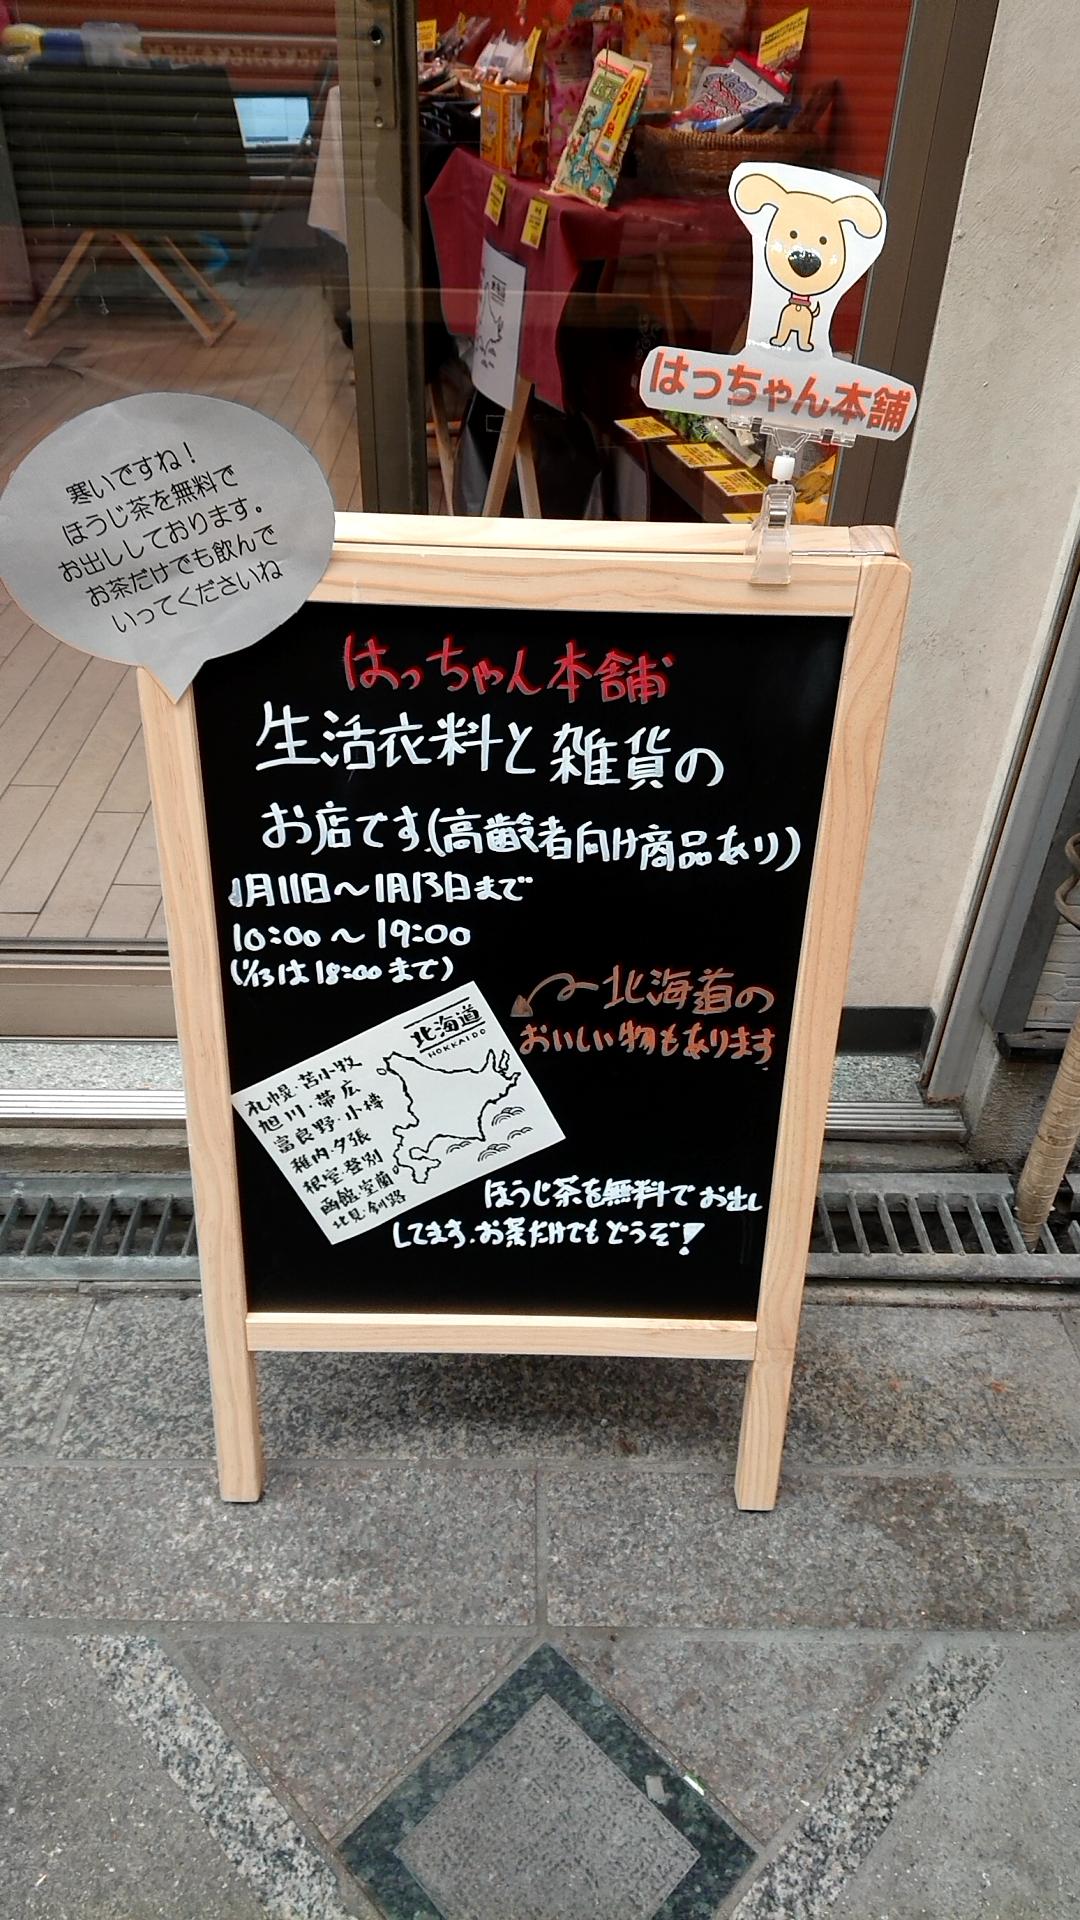 はっちゃん本舗
寒いですね！
ほうじ茶を無料で
お出ししております。
お茶だけでも飲んで
いってくださいね
はっちゃん本舗
生活衣料と雑貨の
お店です(高齢者向け商品あり)
1月11日〜1月13日まで
10:00〜19:00
(1/13は18:00まで)
北海道の
おいしい物もあります
北海道
HOKKAIDO
札幌・苫小牧
旭川・帯広
富良野・小樽
稚内・夕張
根室・登別
函館・室蘭
北見・釧路
ほうじ茶を無料でお出し
してます.お茶だけでもどうぞ!